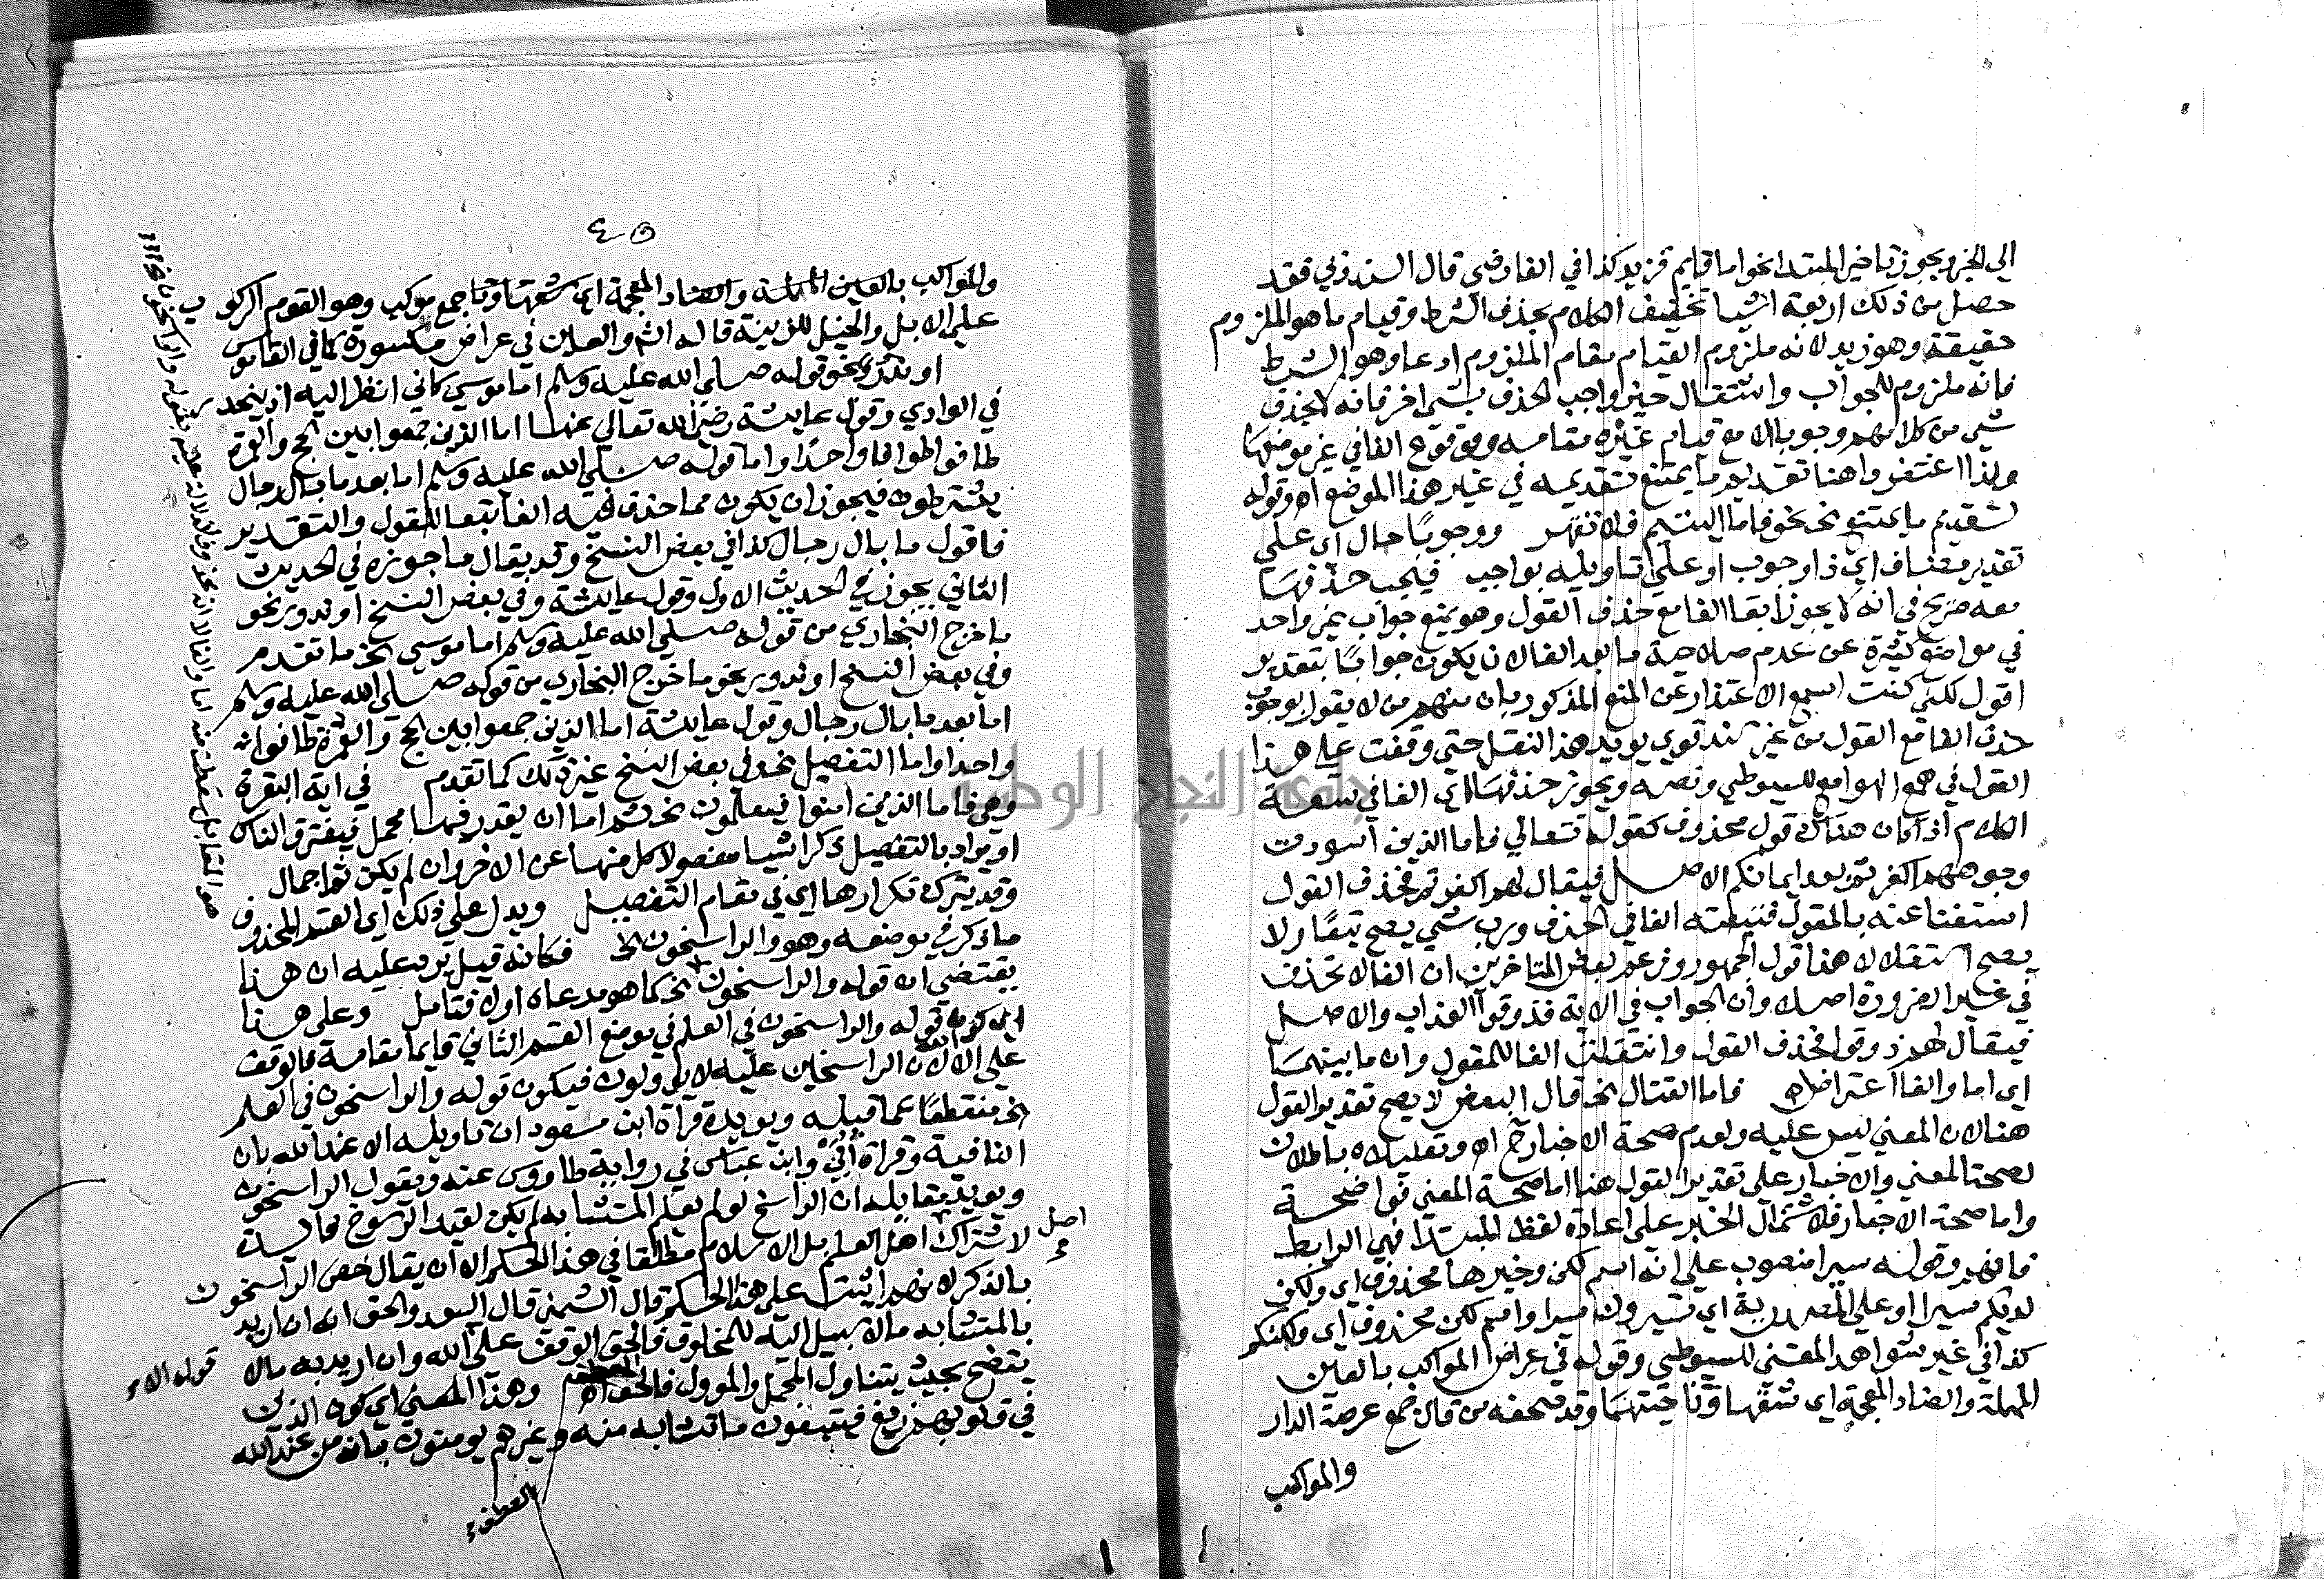 الى الخبر ويجوز تاخير المبتدا نحو اما قايم فزيد كذا في الفارضي قال السندوبي فقد
حصل من ذلك اربعة اشيا تخفيف الكلام بحذف الشرط وقيام ما هو الملزوم
حقيقة وهو زيد لانه ملزوم القيام مقام الملزوم ادعا وهو الشرط
فانه ملزوم للجواب واشتغال حيز واجب الحذف بشي اخر فانه لا يحذف
شي من كلامهم وجوبا الا مع قيام غيره مقامه ووقوع الفا في غير موضعها
ولذا اغتفروا هنا تقديم ما يمتنع تقديمه في غير هذا الموضع اه وقوله
تقديم ما يمتنع نحو فاما اليتيم فلا تقهر ووجوبا حال اي على
تقدير مضاف اي ذا وجوب او على تاويله بواجب فيجب حذفها
معه صريح في انه لا يجوز ابقا الفا مع حذف القول وهو يمنع جواب غير واحد
في مواضع كثيرة عن عدم صلاحية ما بعد الفا لان يكون جوابا بتقدير
اقول لكني كنت اسمع الاعتذار عن المنع المذكور بان منهم من لا يقول بوجوب
حذف الفا مع القول من غير سند قوي يويد هذا النقل حتى وقفت على هذا
القول في همع الهوامع للسيوطي ونصه ويجوز حذفها اي الفا في سعة
الكلام اذا كان هناك قول محذوف كقوله تعالى فاما الذين اسودت
وجوههم اكفرتم بعد ايمانكم الاصل فيقال لهم اكفرتم فحذف القول
استغنا عنه بالمقول فتبعته الفا في الحذف ورب شي يصح تبعا ولا
يصح استقلالا هذا قول الجمهور وزعم بعض المتاخرين ان الفا لا تحذف
في غير الضرورة اصلا وان الجواب في الاية فذوقوا العذاب والاصل
فيقال لهم ذوقوا فحذف القول وانتقلت الفا للمقول وان ما بينهما
اي اما والفا اعتراض اه فاما القتال نحو قال البعض لا يصح تقدير القول
هنا لان المعنى ليس عليه ولعدم صحة الاخبار ح اه وتعليلاه باطلان
لصحة المعنى والاخبار على تقدير القول هنا اما صحة المعنى فواضحة
واما صحة الاخبار فلاشتمال الخبر على اعادة لفظ المبتدا فهي الرابط
فافهم وقوله سيرا منصوب على انه اسم لكن وخبرها محذوف اي ولكن
لديكم سيرا او على المصدرية اي تسيرون سيرا واسم لكن محذوف اي ولكنكم
كذا في غير شواهد المغني للسيوطي وقوله في عراض المواكب بالعين
المهملة والضاد المعجمة اي شقها وناحيتها وقد صحفه من قال جمع عرصة الدار
والمواكب
٤٥
والمواكب بالعين المهملة والضاد المعجمة اي شقها و جمع موكب وهو القوم الركوب
على الابل والخيل للزينة قاله الشم والعين في عراض مكسورة كما في القاموس
او ندور نحو قوله صلى الله عليه وسلم اما موسى كاني انظر اليه اذ ينحدر
في الوادي وقول عايشة رضي الله تعالى عنها اما الذين جمعوا بين الحج والعمرة
طافوا طوافا واحدا واما قوله صلى الله عليه وسلم اما بعد ما بال رجال
يشترطون فيجوز ان يكون مما حذف فيه الفا تبعا للقول والتقدير
فاقول ما بال رجال كذا في بعض النسخ وقد يقال ما جوزه في الحديث
الثاني يجوز في الحديث الاول وقول عايشة وفي بعض النسخ او ندور نحو
ما خرج البخاري من قوله صلى الله عليه وسلم اما موسى نحو ما تقدم
وفي بعض النسخ او ندور نحو ما خرج البخاري من قوله صلى الله عليه وسلم
اما بعد ما بال رجال وقول عايشة اما الذين جمعوا بين الحج والعمرة طافوا
واحدا واما التفصيل نحو في بعض النسخ غير ذلك كما تقدم في اية البقرة
وهي فاما الذين امنوا فيعلمون نحو ثم اما ان يقدر فيها مجمل فيفترق الناس
او يراد بالتفصيل ذكر اشيا مفصولا كل منها عن الاخر وان لم يكن ثم اجمال
وقد يترك تكرارها اي في مقام التفصيل ويدل على ذلك اي القسم المحذوف
ما ذكر في موضعه وهو والراسخون الخ فكانه قيل يرد عليه ان هذا
يقتضي ان قوله والراسخون نحو كما هو مدعاه اولا فتامل وعلى هذا
اي كون قوله والراسخون في العلم في موضع القسم الثاني قايما مقامه فالوقف
على الا الله لان الراسخين عليه لا يؤولون فيكون قوله والراسخون في العلم
نحو منقطعا عما قبله ويويده قراة ابن مسعود ان تاويله الا عند الله بان
النافية وقراة ابي وابن عباس في رواية طاووس عنه ويقول الراسخون
ويويد مقابله ان الراسخ لو لم يعلم المتشابه لم يكن لقيد الرسوخ فايدة
لاشتراك اهل العلم بل الاسلام مطلقا في هذا الحكم الا ان يقال خص الراسخون
بالذكر لانهم اثبت على هذا الحكم قال الشمني قال السعد والحق انه ان اريد
بالمتشابه ما لا سبيل اليه للمخلوق فالحق الوقف على الله وان اريد به ما لا
يتضح بحيث يتناول المجمل والموول فالحق العطف اه وهذا المعنى اي كون الذين
في قلوبهم زيغ فيتبعون ما تشابه منه وغيرهم يومنون بانه من عند الله
اصل
قوله الا
العطف